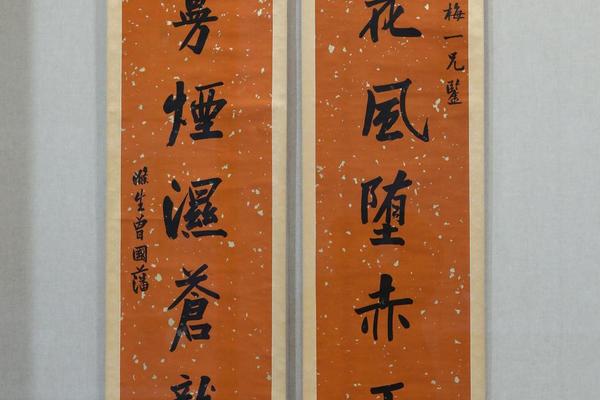 梅一兄鑒
花風堕赤
煙濕蒼龍
滌生曾國藩